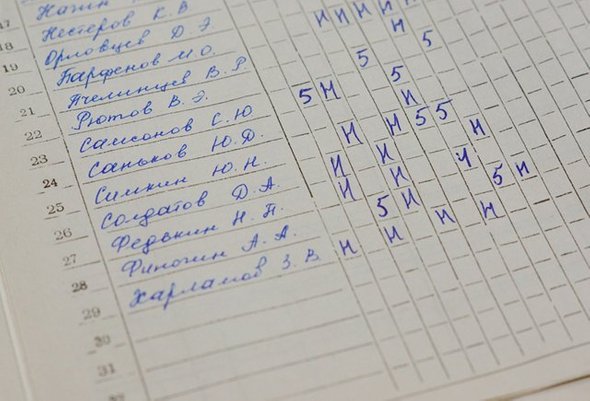 17
Нестеров К. В
18
Орловцев Д Э
19
Парфенов М О.
20
Пчелинцев В. Р.
21
Рютов В. Э.
22
Самсонов С. Ю
23
Саньков Ю. Д.
24
Симкин Ю. Н.
25
Солдатов Д. А.
26
Федякин Н. П.
27
Финогин А. А.
28
Харламов З. В
29
30
31
Н Н Н Н
Н
5 5
5
5 Н Н
5 5
Н Н Н
Н Н
Н Н 5 Н
5 Н
Н Н
Н Н